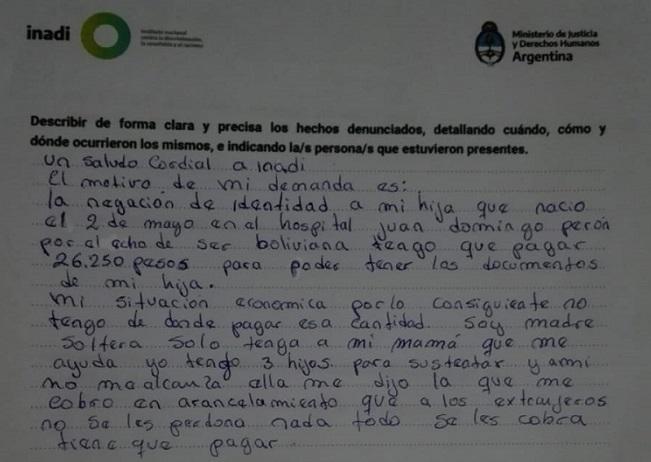 inadi
instituto nacional
contra la discriminación,
la xenofobia y el racismo
Ministerio de Justicia
y Derechos Humanos
Argentina
Describir de forma clara y precisa los hechos denunciados, detallando cuándo, cómo y
dónde ocurrieron los mismos, e indicando la/s persona/s que estuvieron presentes.
un saludo Cordial a inadi
El motivo de mi demanda es:
la negación de identidad a mi hija que nacio
el 2 de mayo en al hospital juan domingo perón
por al echo de ser boliviana tengo que pagar
26.250 pesos para poder tener los documentos
de mi hija.
mi situación economica por lo consiguiente no
tengo de donde pagar esa cantidad. Soy madre
Soltera Solo tengo a mi mamá que me
ayuda yo tengo 3 hijos para sustentar y ami
no me alcanza ella me dijo la que me
cobro en arancelamiento que a los extranjeros
no se les perdona nada todo se les cobra
tiene que pagar